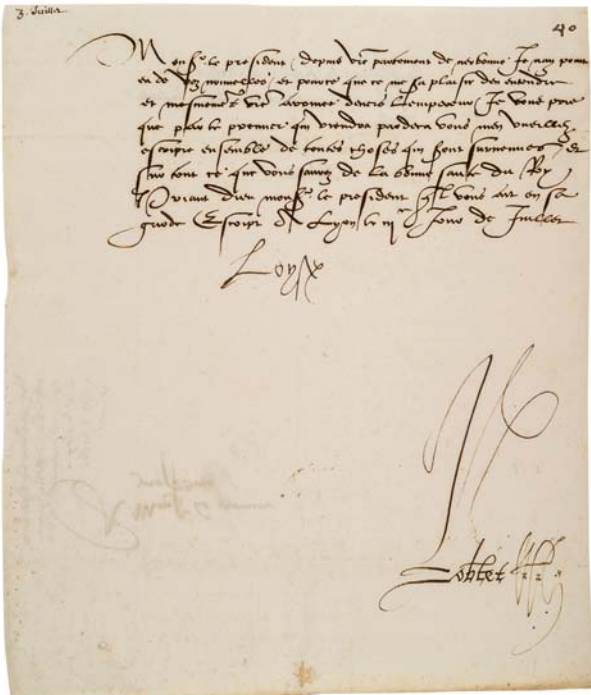 3. Juillet
40
Mons.r le president, depuis v.re partement de nerbonne Je nay point
eu de voz nouvelles, et pource que ce me sa plaisir den entendre
et mesmement v.re arrivee devers Lempereur Je vous prie
que par le premier qui viendra pardeca vous men vueillez
escripre ensemble de toutes choses qui sont survenues Et
sur tout ce que vous saurez de la bonne sante du Roy
Priant dieu mons.r le president quil vous ait en sa
garde Escript A Lyon le iij.e Jour de Juillet
Loyse
Robertet